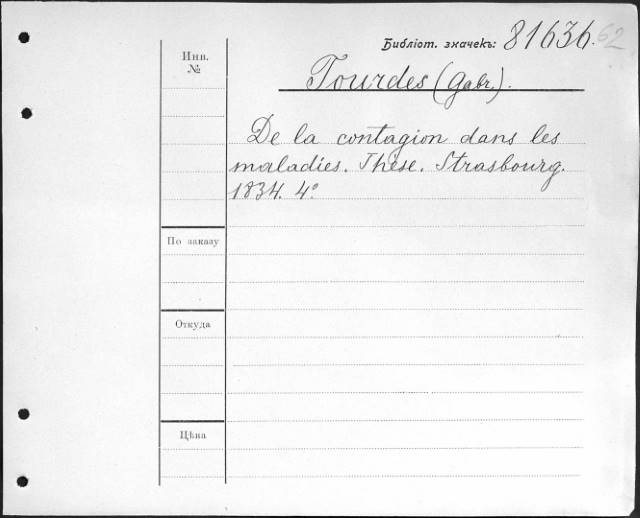 Библіот. значекъ: 81636.62
Инв.
№
Tourdes (Gabr.).
De la contagion dans les
maladies. Thèse. Strasbourg.
1834. 4º.
По заказу
Откуда
Цѣна